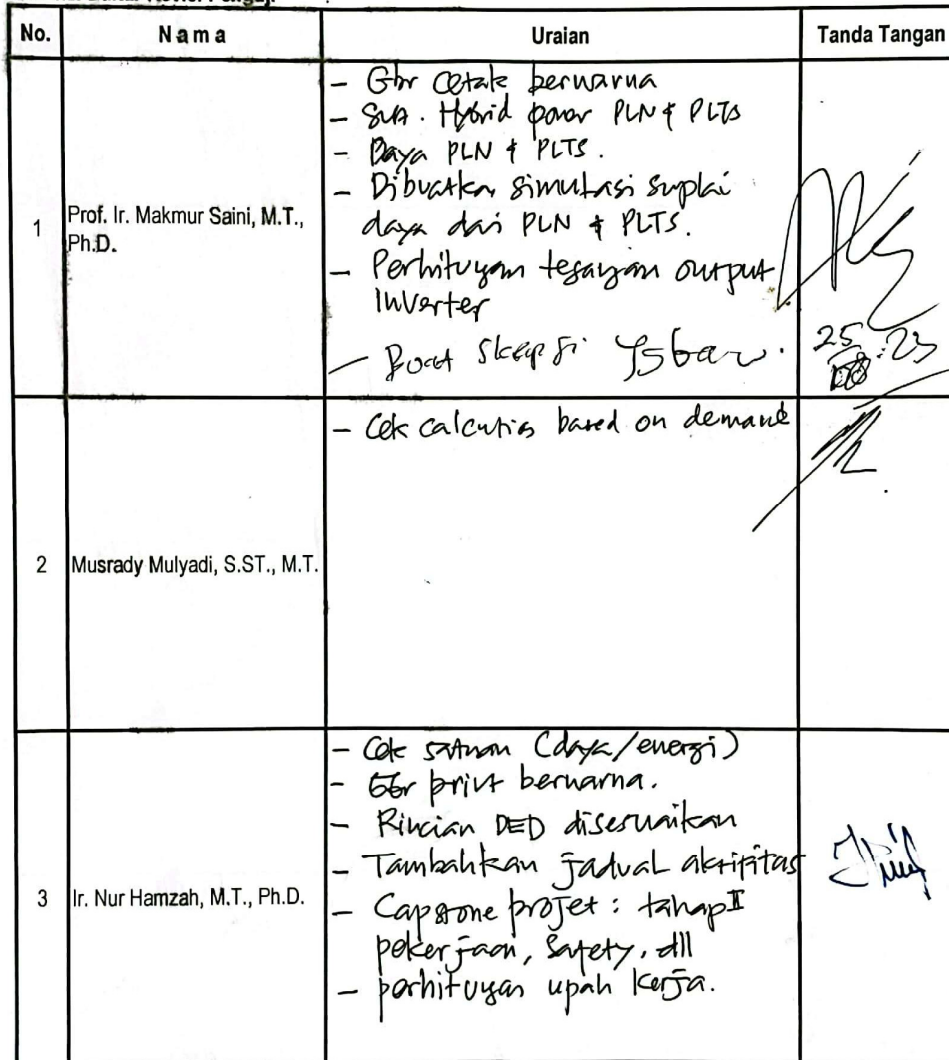 No.
N a m a
Uraian
Tanda Tangan
1
Prof. Ir. Makmur Saini, M.T.,
Ph.D.
- Gbr Cetak berwarna
- Hybrid power PLN & PLTS
- Daya PLN & PLTS.
- Dibuatkan simulasi suplai
daya dari PLN & PLTS.
- Perhitungan tegangan output
Inverter
- Buat Skripsi
25
23
2
Musrady Mulyadi, S.ST., M.T.
- Cek based on demand
3
Ir. Nur Hamzah, M.T., Ph.D.
- Cek satuan (daya/energi)
- Gbr print berwarna.
- Rincian DED disesuaikan
- Tambahkan jadual aktifitas
- Capstone projet : tahap II
pekerjaan, Safety, dll
- perhitugan upah kerja.